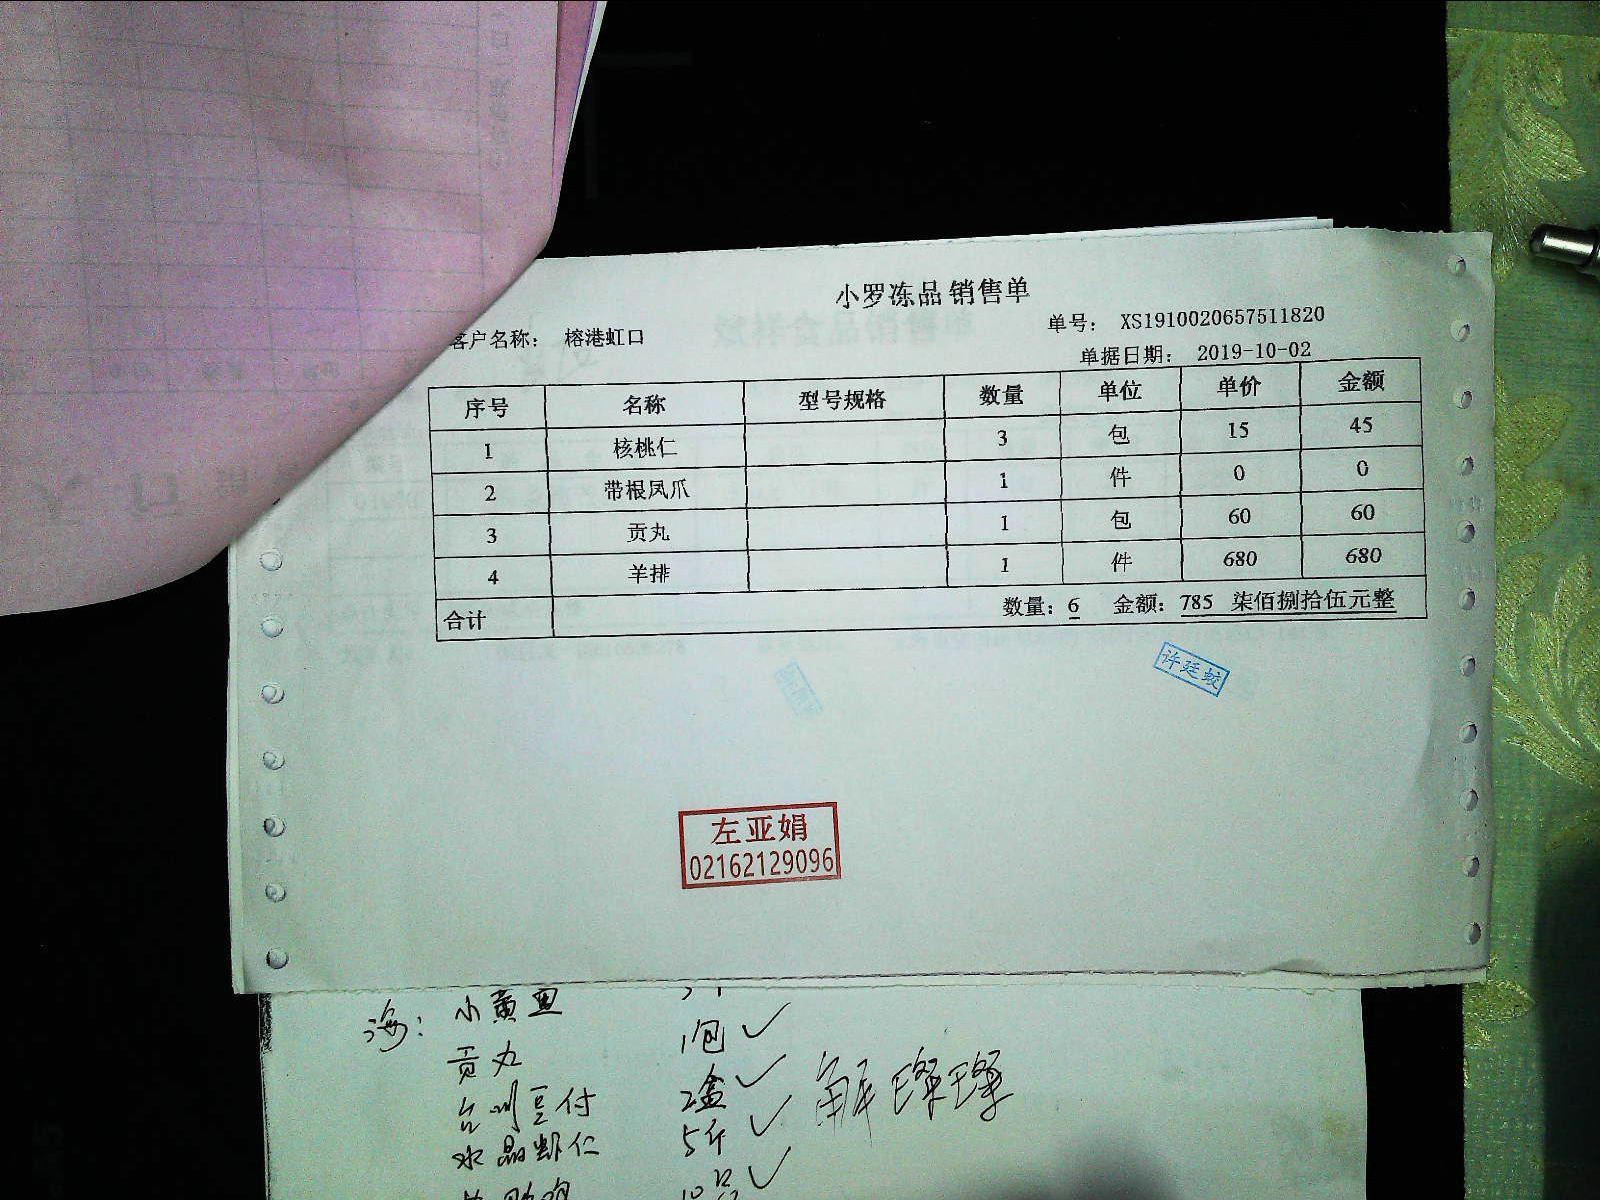 小罗冻品 销售单
客户名称： 榕港虹口
单号： XS1910020657511820
单据日期： 2019-10-02
序号 名称 型号规格 数量 单位 单价 金额
1 核桃仁 3 包 15 45
2 带根凤爪 1 件 0 0
3 贡丸 1 包 60 60
4 羊排 1 件 680 680
合计 数量：6 金额：785 柒佰捌拾伍元整
许廷蛟
左亚娟
02162129096
海：小黄鱼
贡丸 1包
台州豆付 2盒
水晶虾仁 5斤